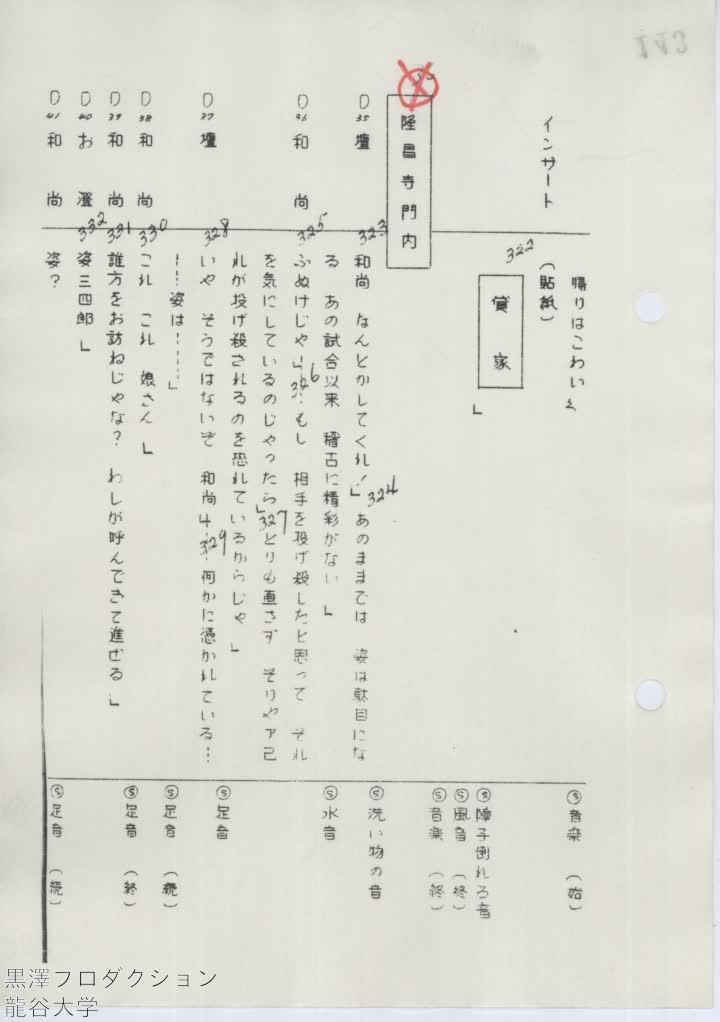 143
インサート
帰りはこわい〻
Ⓢ音楽 （始）
322
（貼紙）
貸家」
Ⓢ障子倒れる音
Ⓢ風音 （終）
Ⓢ音楽 （終）
隆昌寺門内
D35 壇
323
和尚 なんとかしてくれ！」 324 あのままでは 姿は駄目にな
る あの試合以来 稽古に精彩がない 」
Ⓢ洗い物の音
Ⓢ水音
D36 和尚
325
ふぬけじゃ 326 もし 相手を投げ殺したと思って それ
を気にしているのじゃったら」 327 とりも直さず そりゃア己
れが投げ殺されるのを恐れているからじゃ 」
D37 壇
328
いや そうではないぞ 和尚 329 何かに憑かれている…
……姿は………」
Ⓢ足音
Ⓢ足音 （続）
D38 和尚
330
これ これ 娘さん 」
Ⓢ足音 （終）
D39 和尚
331
誰方をお訪ねじゃな？ わしが呼んできて進ぜる 」
D40 お澄
332
姿三四郎 」
D41 和尚
姿？
Ⓢ足音 （続）
黒澤プロダクション
龍谷大学